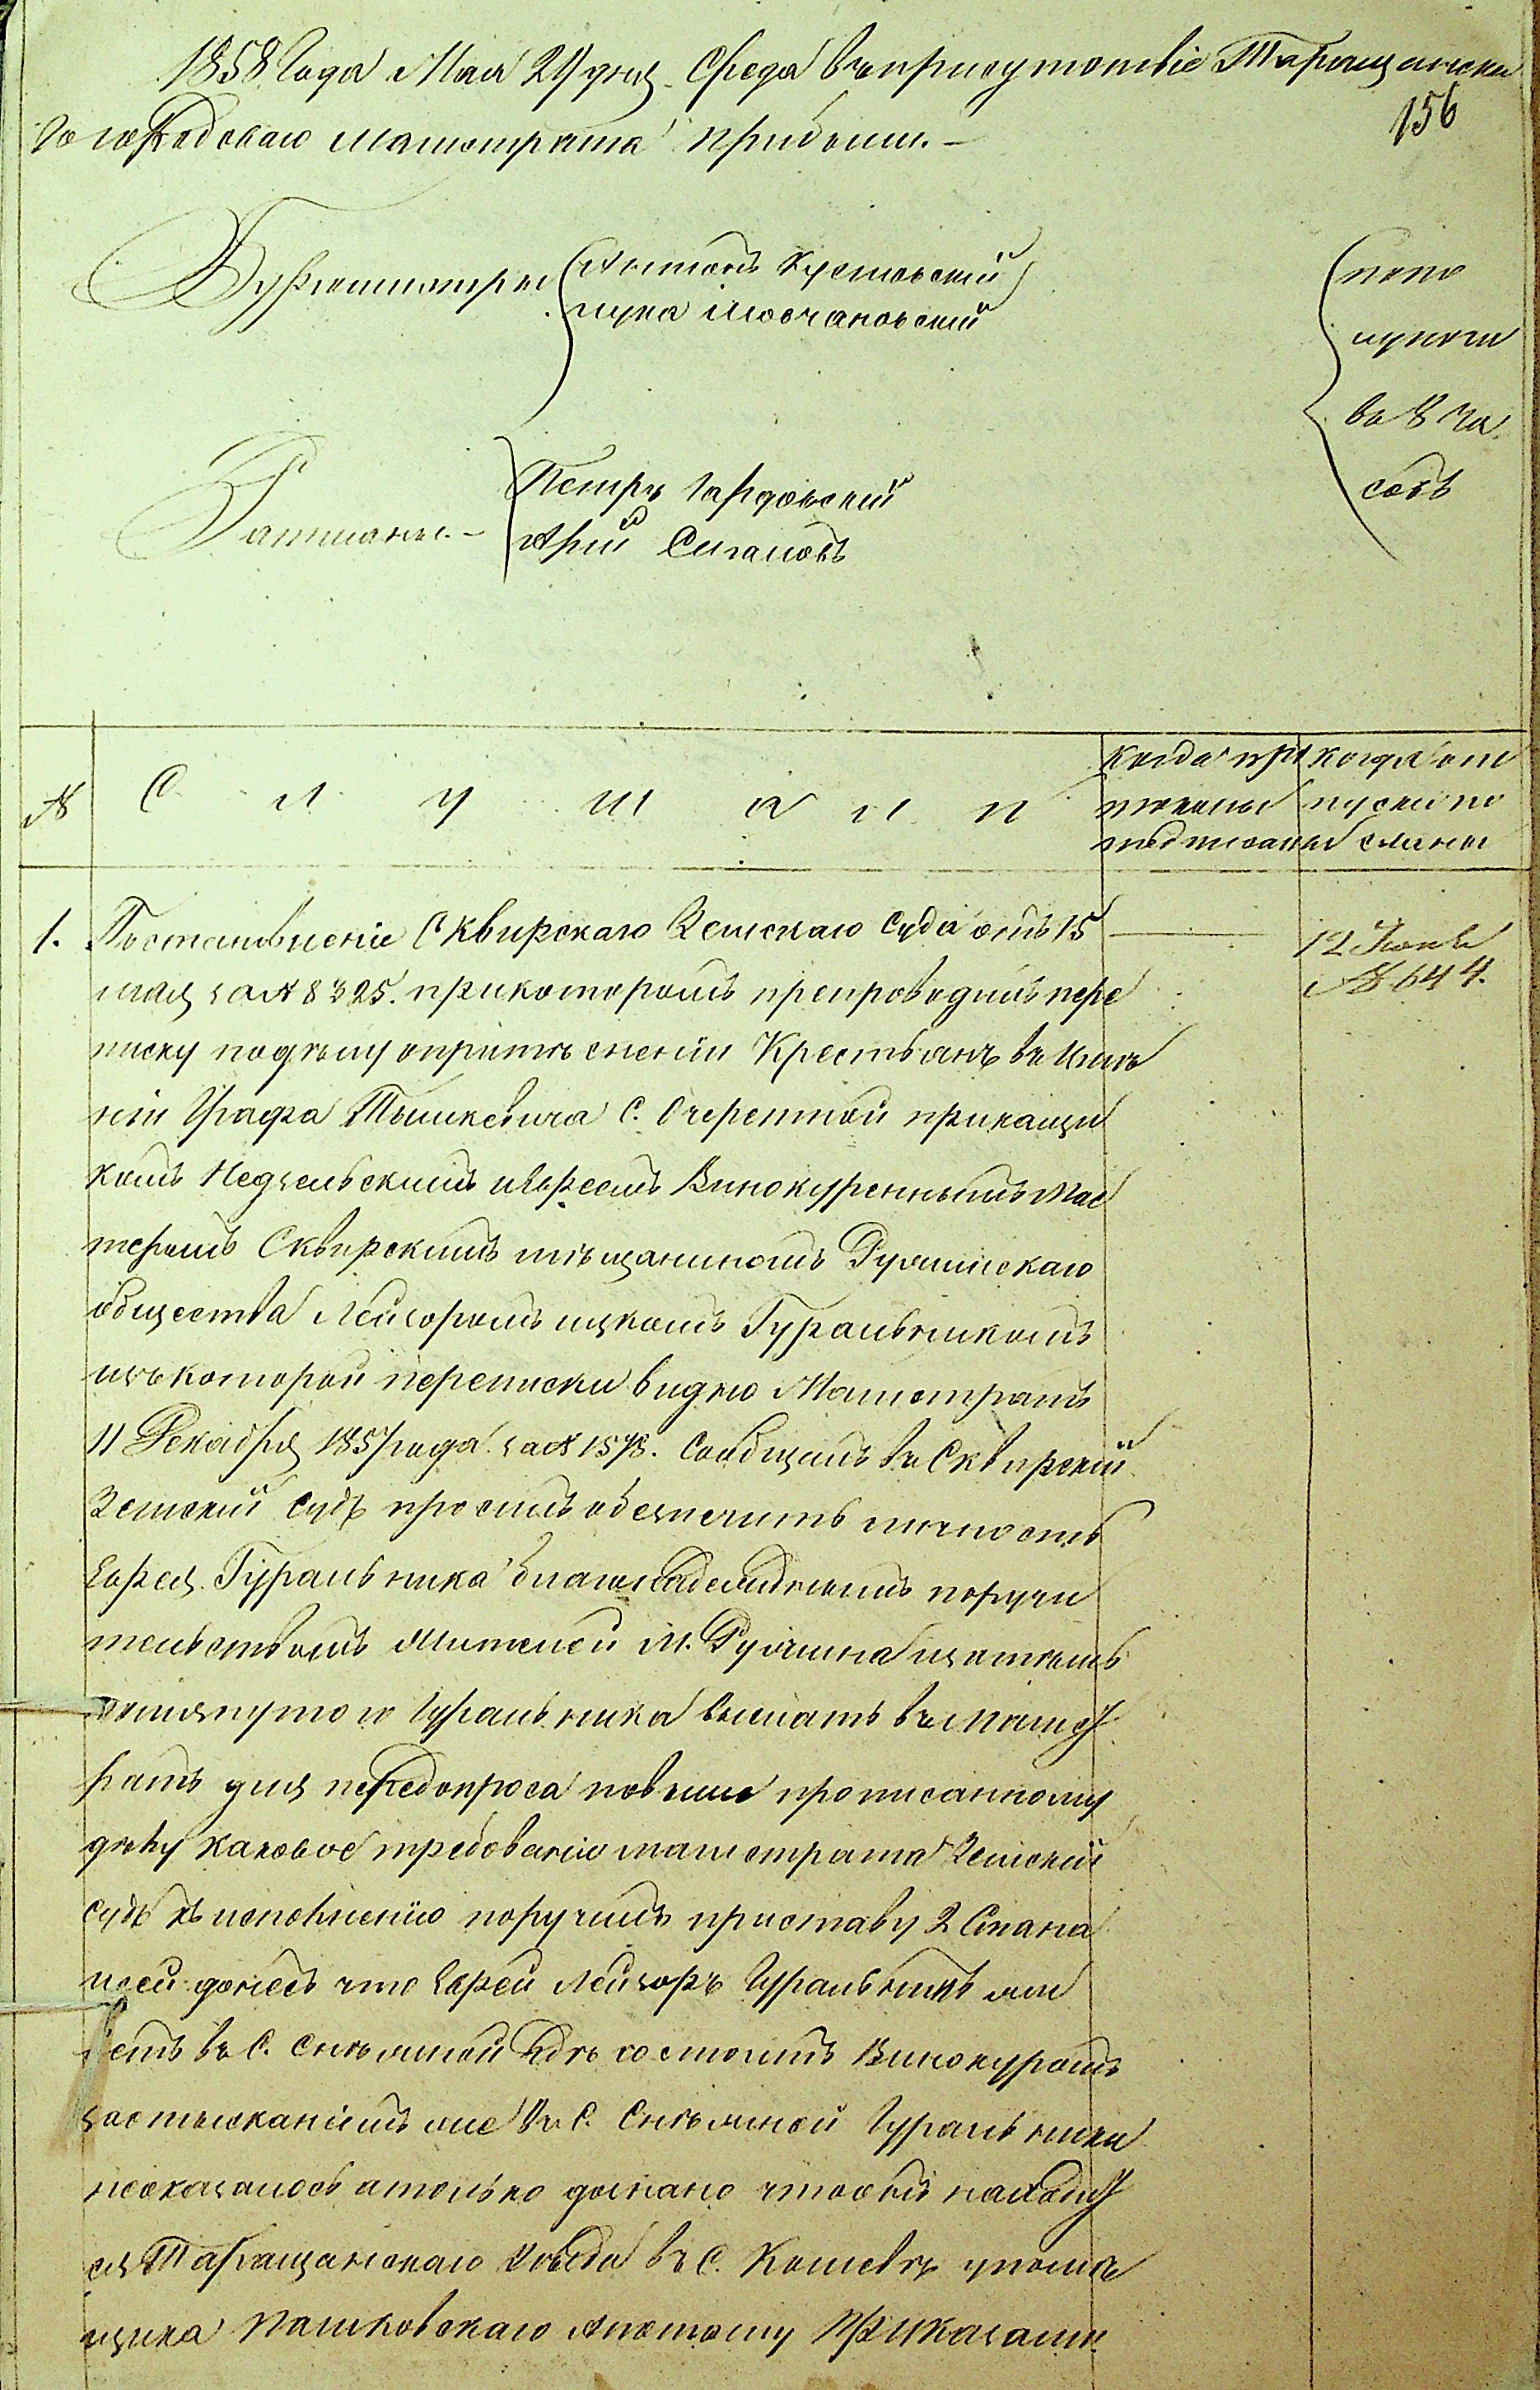 1858 Года Мая 2[?] дня Среда въ присутствіе Таращанска
го Городскаго Магистрата прибыли. —
156
Бургомистры
Антонъ Кусповскій
Лука Мовчановскій
попо
луночи
въ 8 ча
совъ
Ратманы. —
Петръ Гардовскій
Арій Слгаловъ
№
С л у ш а л и
когда про
токолы
подписаны
когда от
пуски по
сланы
1. Постановленіе Сквирскаго Земскаго Суда отъ 15
мая за № 8325. при которомъ препроводилъ пере
писку по дѣлу о притѣсненіи Крестьянъ въ Имѣ
ніи Графа Тышкевича С. Очеретной прикащи
комъ Недзельскимъ и Евреемъ Винокуреннымъ Мас
теромъ Сквирскимъ мѣщаниномъ Ружинскаго
общества Лейзоромъ Ицкомъ Гуральникомъ
изъ которой переписки видно Магистратъ
11 Декабря 1857 года за № 1578. Сообщилъ въ Сквирскій
Земскій Судъ просилъ обезпечить личность
Еврея Гуральника благонадежнымъ поручи
тельствомъ Жителей М. Ружина и затѣмъ
помянутого Гуральника выслать въ Магист
ратъ для передопроса по выше прописанному
дѣлу каковое требованіе магистрата Земскій
Судъ къ исполненію поручилъ приставу 2 Стана
и сей донесъ что Еврей Лейзоръ Гуральникъ жи
ветъ въ С. Снѣжной гдѣ состоитъ Винокуромъ
за отысканіемъ же въ С. Снѣжной Гуральника
неоказалось а только дознано что онъ находит
ся Таращанскаго Уѣзда въ С. Кошевѣ у помѣ
щика Пашковскаго а потому Приказали
12 Іюня
№ 644.